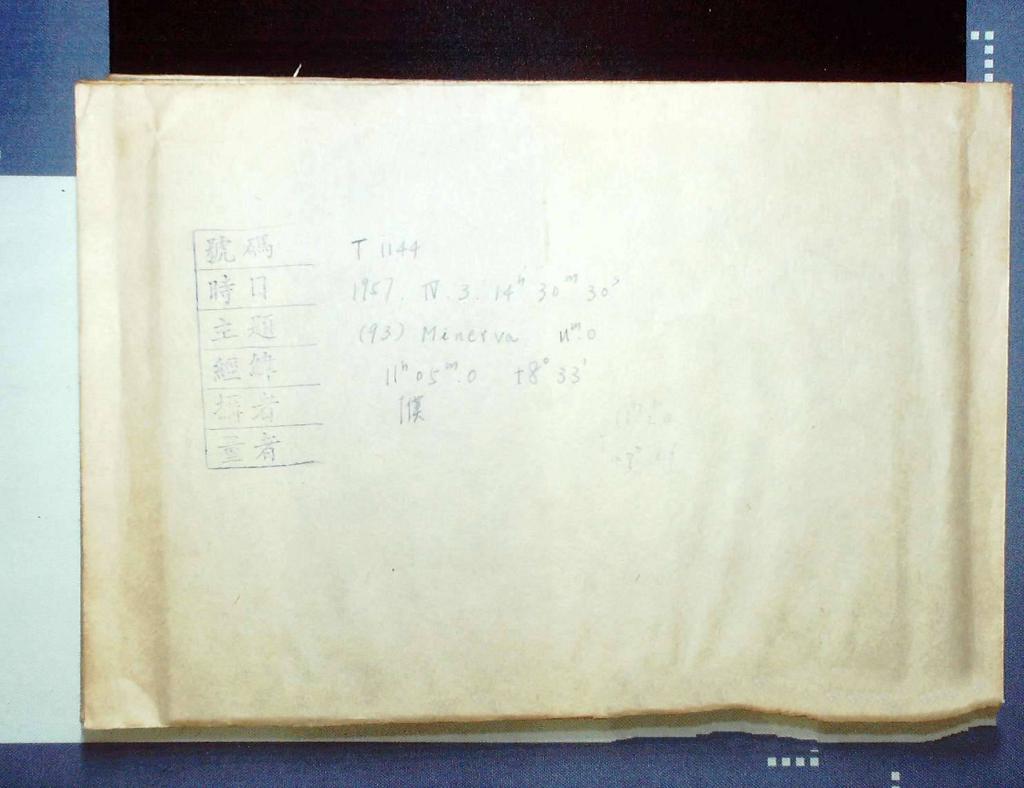 號碼 T 1144
時日 1957. IV. 3. 14ʰ 30ᵐ 30ˢ
主題 (93) Minerva 11ᵐ.0
經緯 11ʰ 05ᵐ.0 +8° 33'
攝者
量者